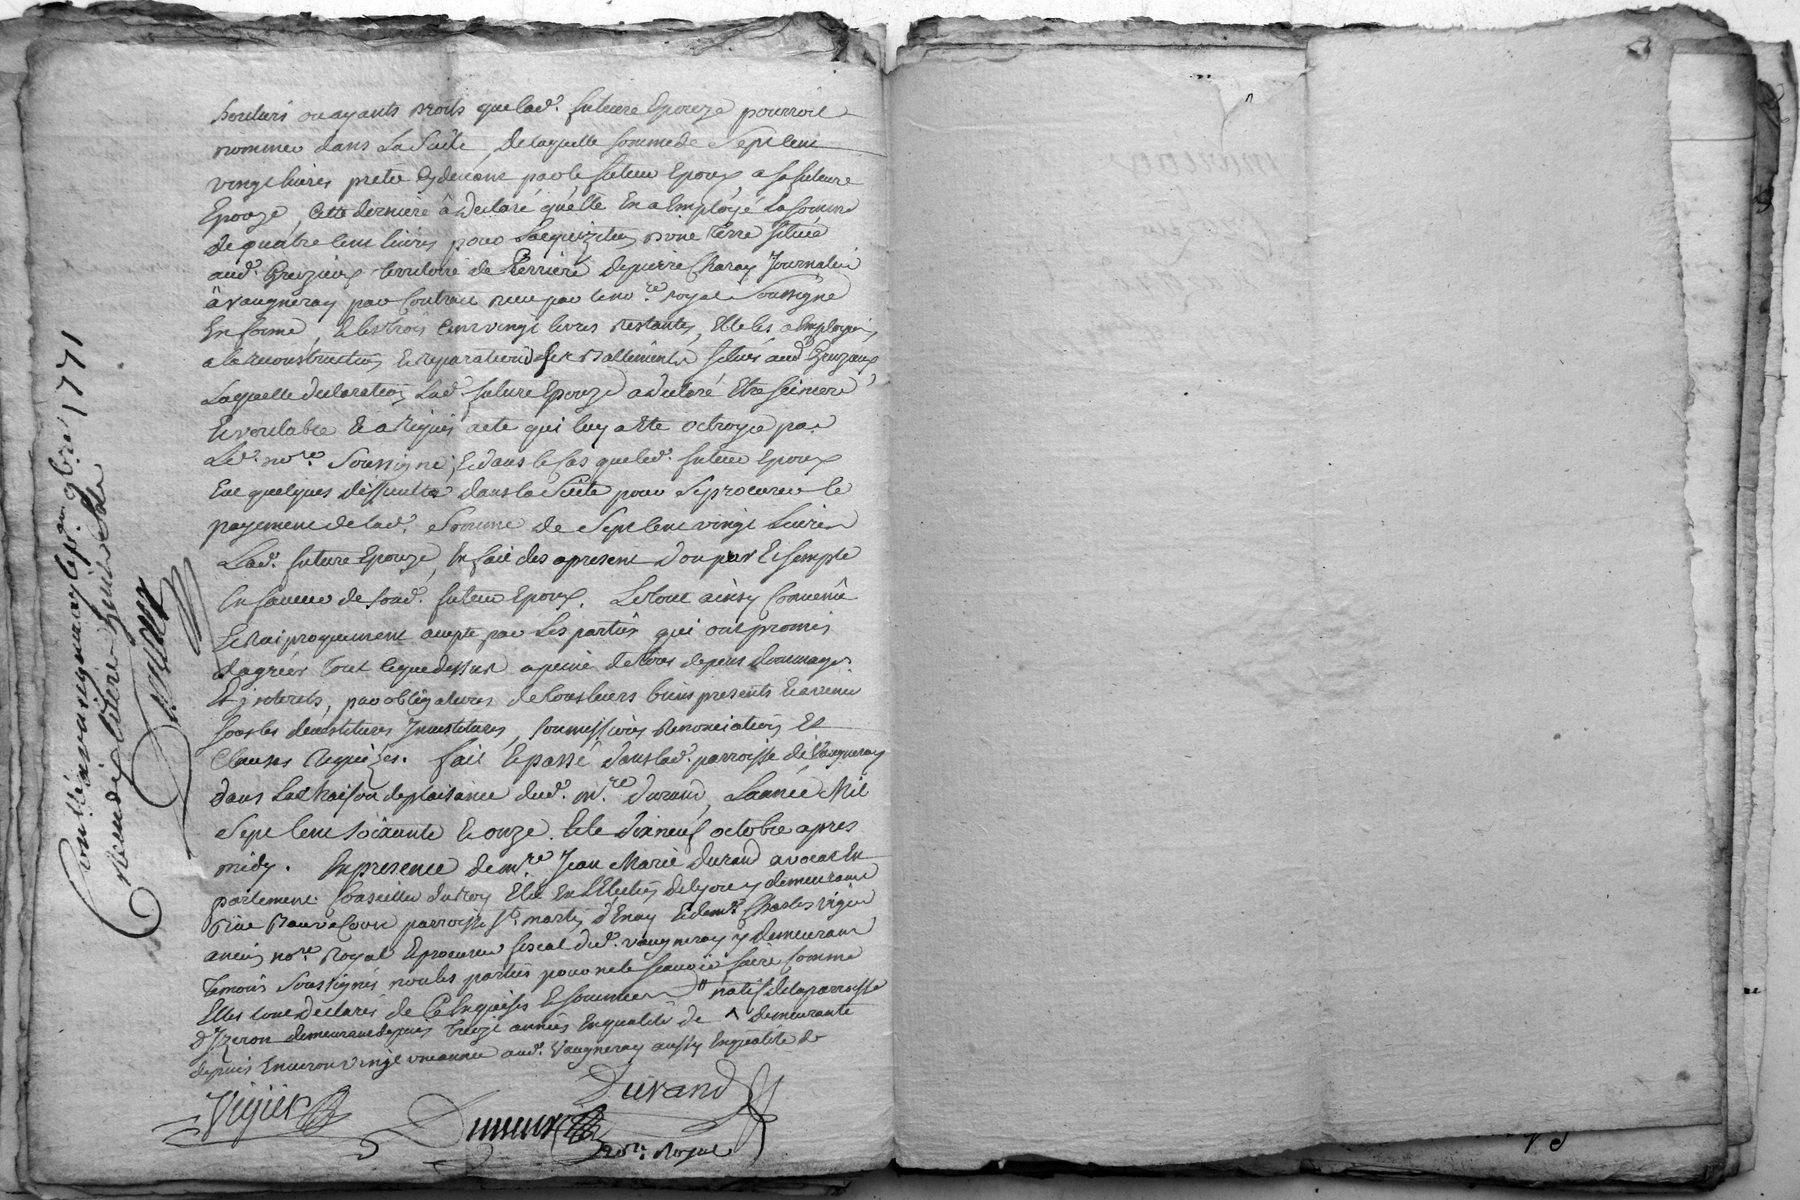 ou ayants droits que lad.e future Epouze pourroit
nommer dans La Suite, de laquelle somme de Sept cent
vingt livres pretée par le futeur Epoux a sa future
Epouze, Cette derniere â declaré qu'elle En a Employé La somme
de quatre cent livres pour L'acquizition d'une terre située
aud. Greuzieux territoire de Perriere de pierre Charay Journalier
â Vaugneray par Contrat recu par le no.re royal Soussigné
En forme, Et les trois Cent vingt livres restantes, Elle les a Employés
a la reconstruction Et reparation des Battiments situés aud. Greuzieux
Laquelle declaration Lad. future Epouze a declaré Etre sincere
Et veritable Et a requis acte qui luy a Eté octroyé par
Led. no.re Soussigné; Et dans le Cas que led. futeur Epoux
Eut quelques difficultés dans la Suite pour Se procurer le
payement de lad. Somme de Sept cent vingt Livres
Lad. future Epouze, En fait des a present don pur Et simple
En faveur de sond. futeur Epoux. Le tout ainsy Convenu
Et reciproquement accepté par Les parties qui ont promis
d'agréer tout ce que dessus a peine de tous depens dommages
Et interets, par obligations de tous leurs biens presents Et avenir
sous les Soumissions Renonciations Et
Clauses Requizes. fait Et passé dans lad. parroisse de Vaugneray
dans La Maison de plaisance dud. m.re durand, L'année Mil
Sept Cent soixante Et onze. Et le dixneuf octobre apres
midy. En presence de m.re Jean Marie durand avocat En
parlement Conseiller du roy Elû En L'Election de lyon y demeurant
Rüe parroisse St. martin d'Enay Et de m.e Charles Vigier
ancien no.re Royal Et procureur fiscal dud. Vaugneray y demeurant
temoins Soussignés non les parties pour ne le scavoir faire Comme
Elles l'ont declarés de Ce Enquises Et sommées natif de la parroisse
d'Izeron demeurant depuis treize années En qualité de ^ demeurante
depuis Environ vingt une année aud. Vaugneray aussy En qualité de
Vigier
Durand
no.re Royal
Conllé à vaugneray le 9bre 1771